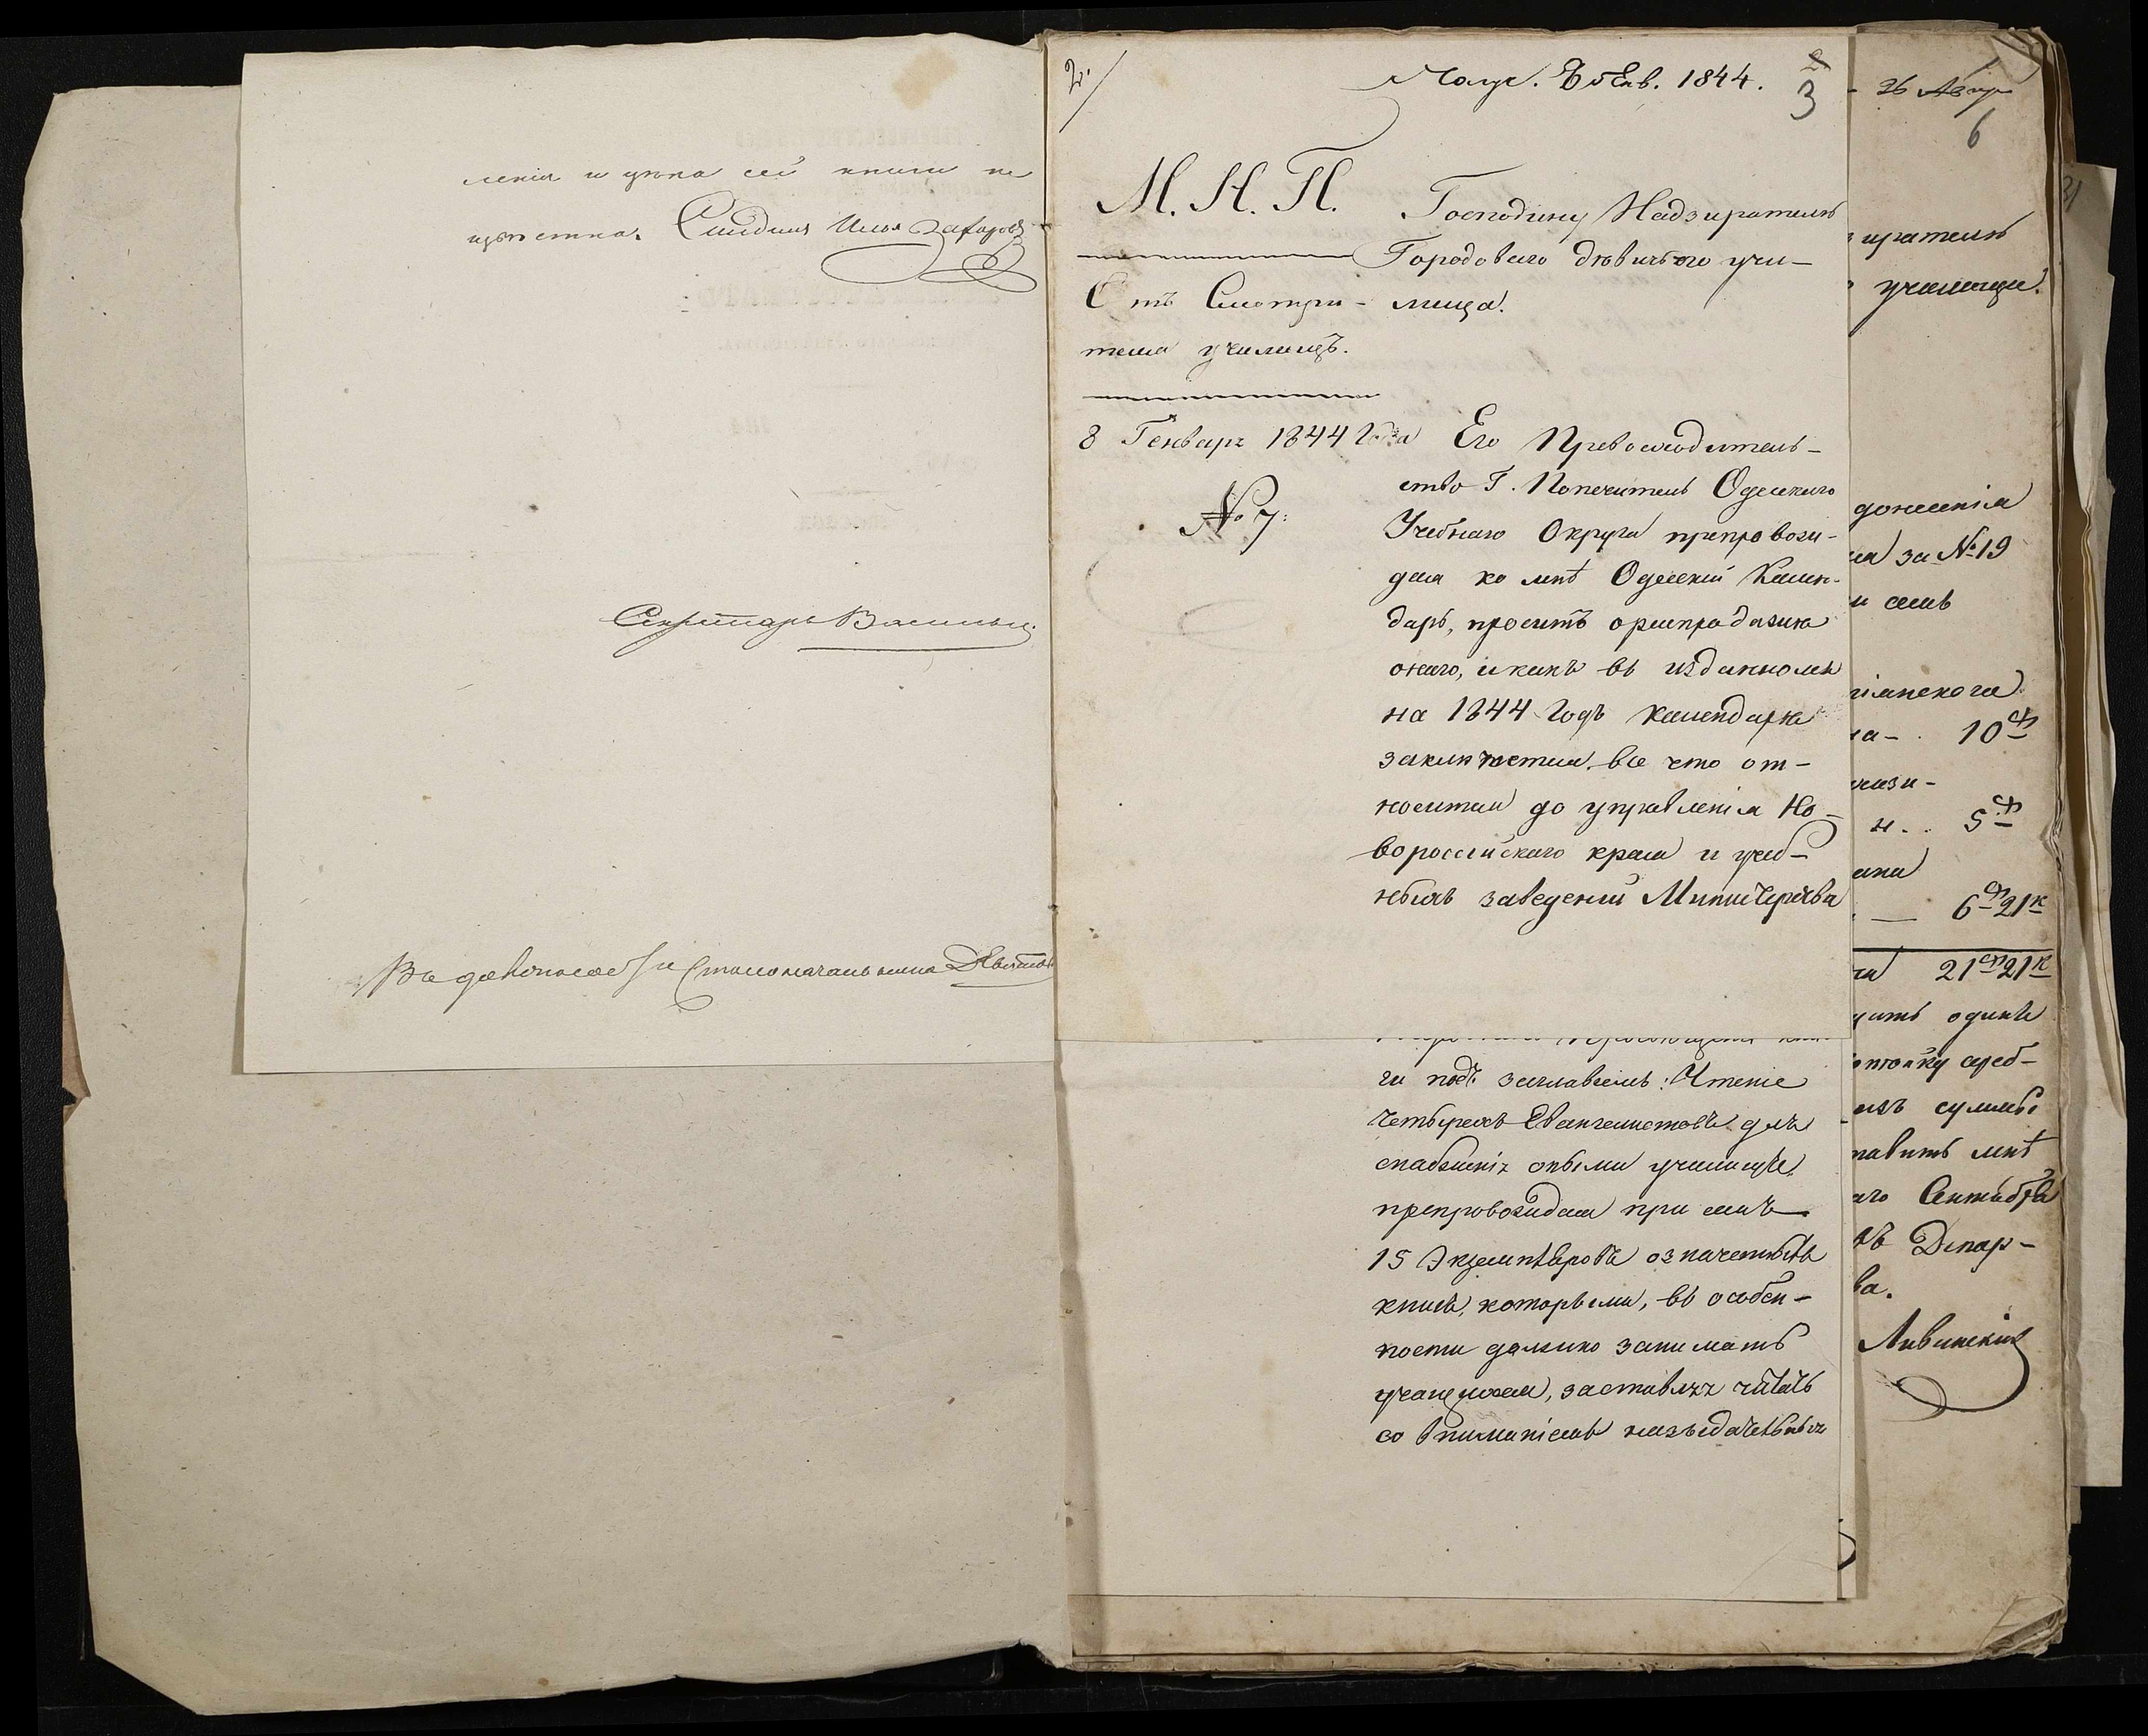 ленія и цѣна сей книги не
извѣстна. Синдикъ Илья Захаровъ
Секретарь Василье
Столоначальника
2.
Получ. 1844.
3
М. Н. П.
Отъ Смотри-
теля училищъ.
8 Генваря 1844 Года
№ 7:
Господину Надзирателю
Городоваго дѣвичьяго учи-
лища.
Его Превосходитель-
ство Г. Попечитель Одесскаго
Учебнаго Округа препровож-
дая ко мнѣ Одесскій Кален-
дарь, проситъ о распродажи
онаго, и какъ въ изданномъ
на 1844 Годъ календарѣ
заключается все что от-
носится до управленія Но-
вороссійскаго края и учеб-
ныхъ заведеній Министерства
ги подъ заглавіемъ: Чтеніе
четырехъ Евангелистовъ для
снабженія оными училищъ,
препровождая при семъ
15 Экземпляровъ означенныхъ
книгъ, которыми, въ особен-
ности должно занимать
учащихся, заставляя читать
со вниманіемъ
26 Авгу
6
зирателю
училища.
донесенія
за № 19
и семь
10 ср
5 ср
6 ср 21 к
21 ср 21 к
цать одинъ
копѣйку сереб-
изъ суммы
тавить мнѣ
аго Сентября
въ Депар-
ва.
Ливинскій
21